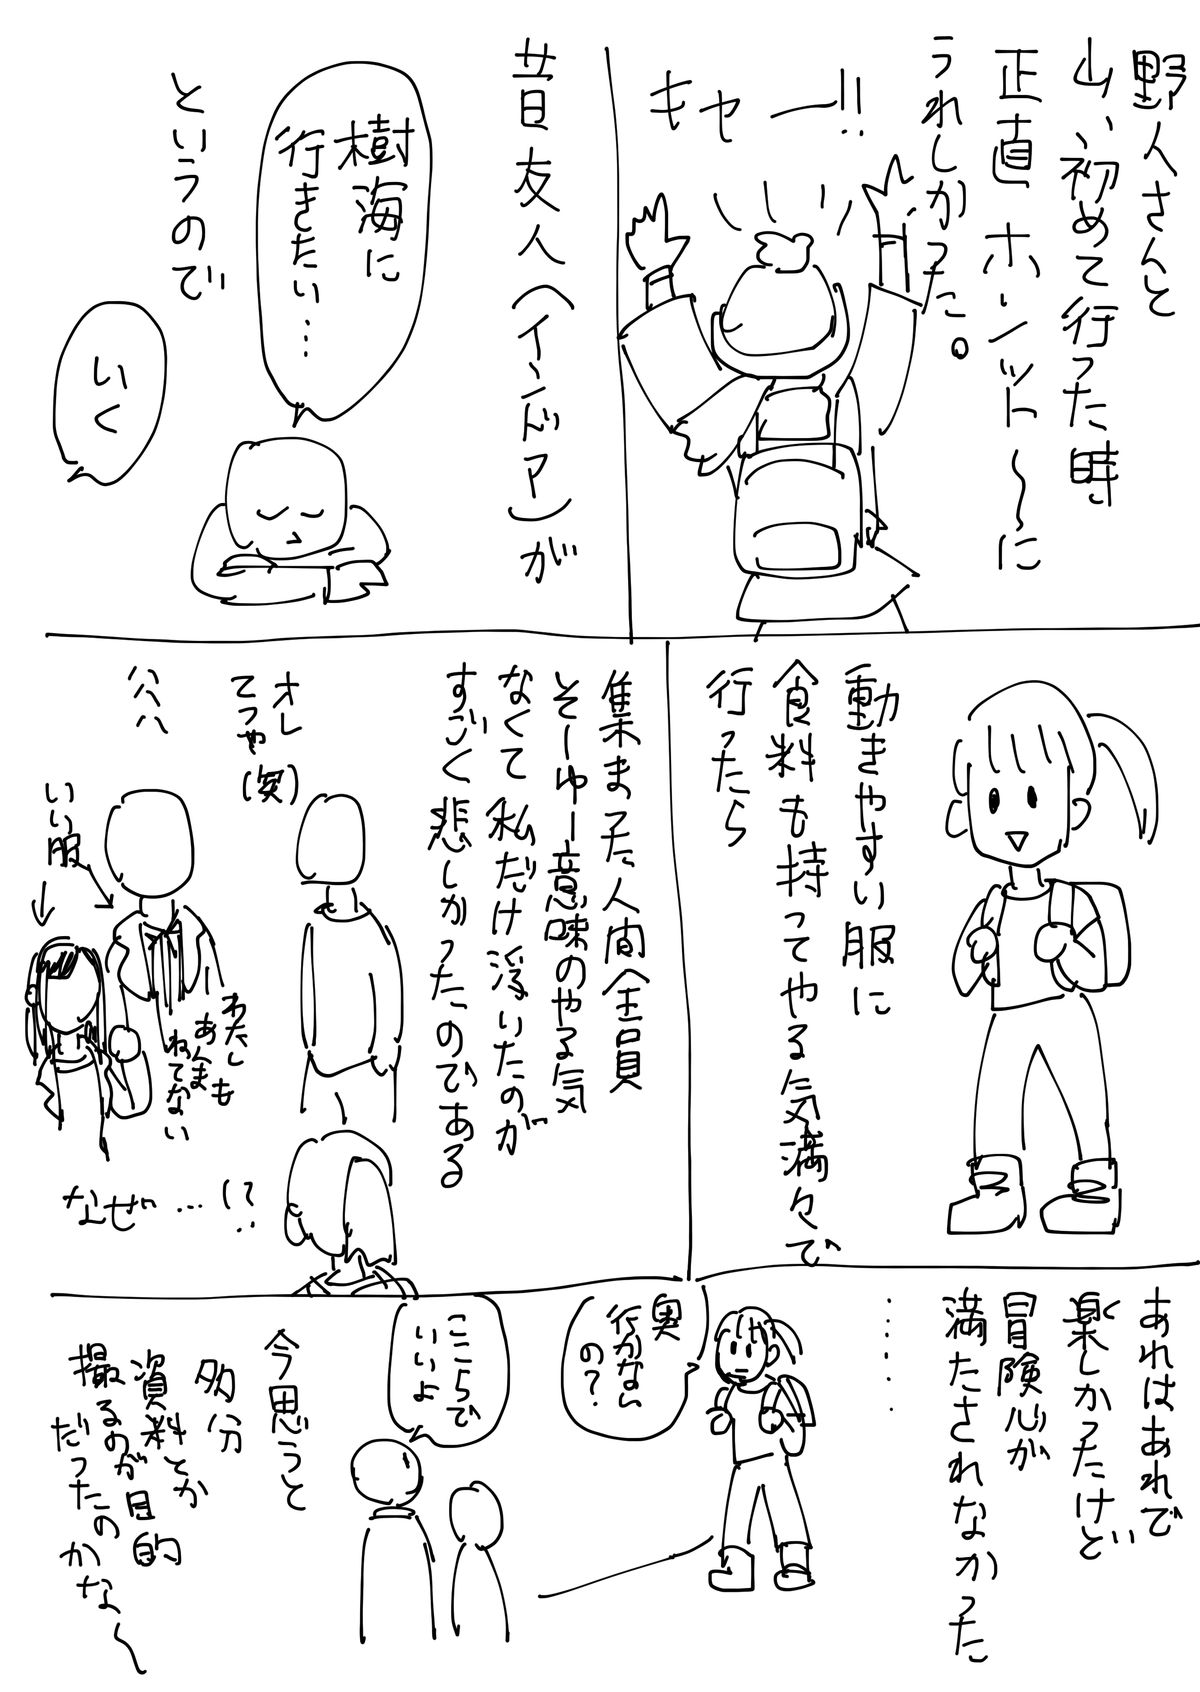 野人さんと
山、初めて行った時
正直ホンット〜に
うれしかった。
キャー!!
昔友人(インドア)が
樹海に
行きたい…
というので
いく
動きやすい服に
食料も持ってやる気満々で
行ったら
集まった人間全員
そーゆー意味のやる気
なくて私だけ浮いたのが
すごく悲しかったのである
オレ
てつや(笑)
ハハハ
いい服
わたしも
あんま
ねてない
なぜ…!?
あれはあれで
楽しかったけど
冒険心が
満たされなかった
……
奥
行かない
の?
ここらで
いいよ
今思うと
多分
資料とか
撮るのが目的
だったのかな〜